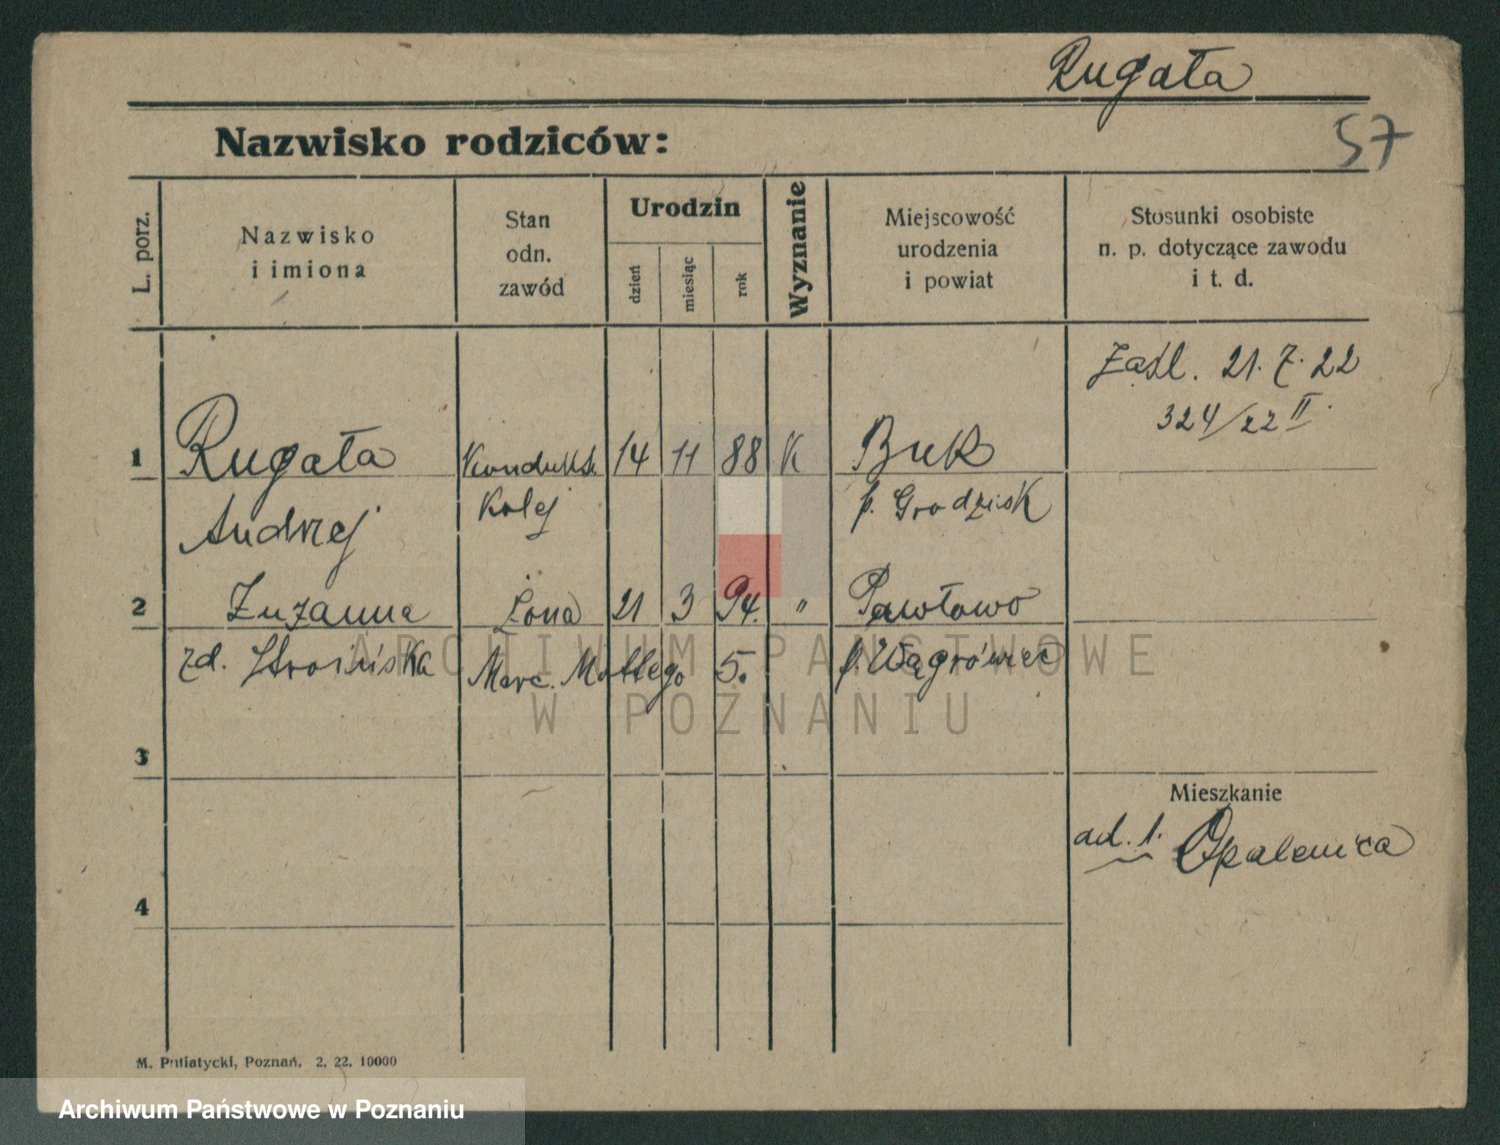 Rugała
57
Nazwisko rodziców:
L. porz.
Nazwisko
i imiona
Stan
odn.
zawód
Urodzin
dzień
miesiąc
rok
Wyznanie
Miejscowość
urodzenia
i powiat
Stosunki osobiste
n. p. dotyczące zawodu
i t. d.
Zaśl. 21. 7. 22
324/22 II.
1 Rugała Kondukt. 14 11 88 K Buk
Andrzej Kolej p. Grodzisk
2 Zuzanna Żona 21 3 94. " Pawłowo
zd. Stroińska Marc. Mottego 5. p. Wągrówiec
3
Mieszkanie
ad. 1. Opalenica
4
M. Putiatycki, Poznań. 2. 22. 10000
ARCHIWUM PAŃSTWOWE
W POZNANIU
Archiwum Państwowe w Poznaniu